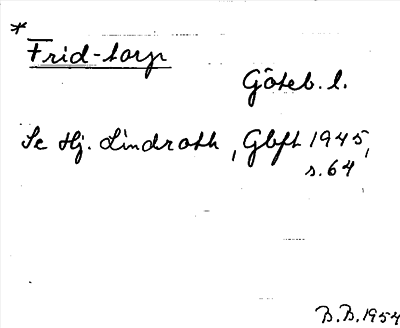 *
Frid-torp
Göteb. l.
Se Hj. Lindroth, Gbft 1945,
s. 64
B.B. 1954